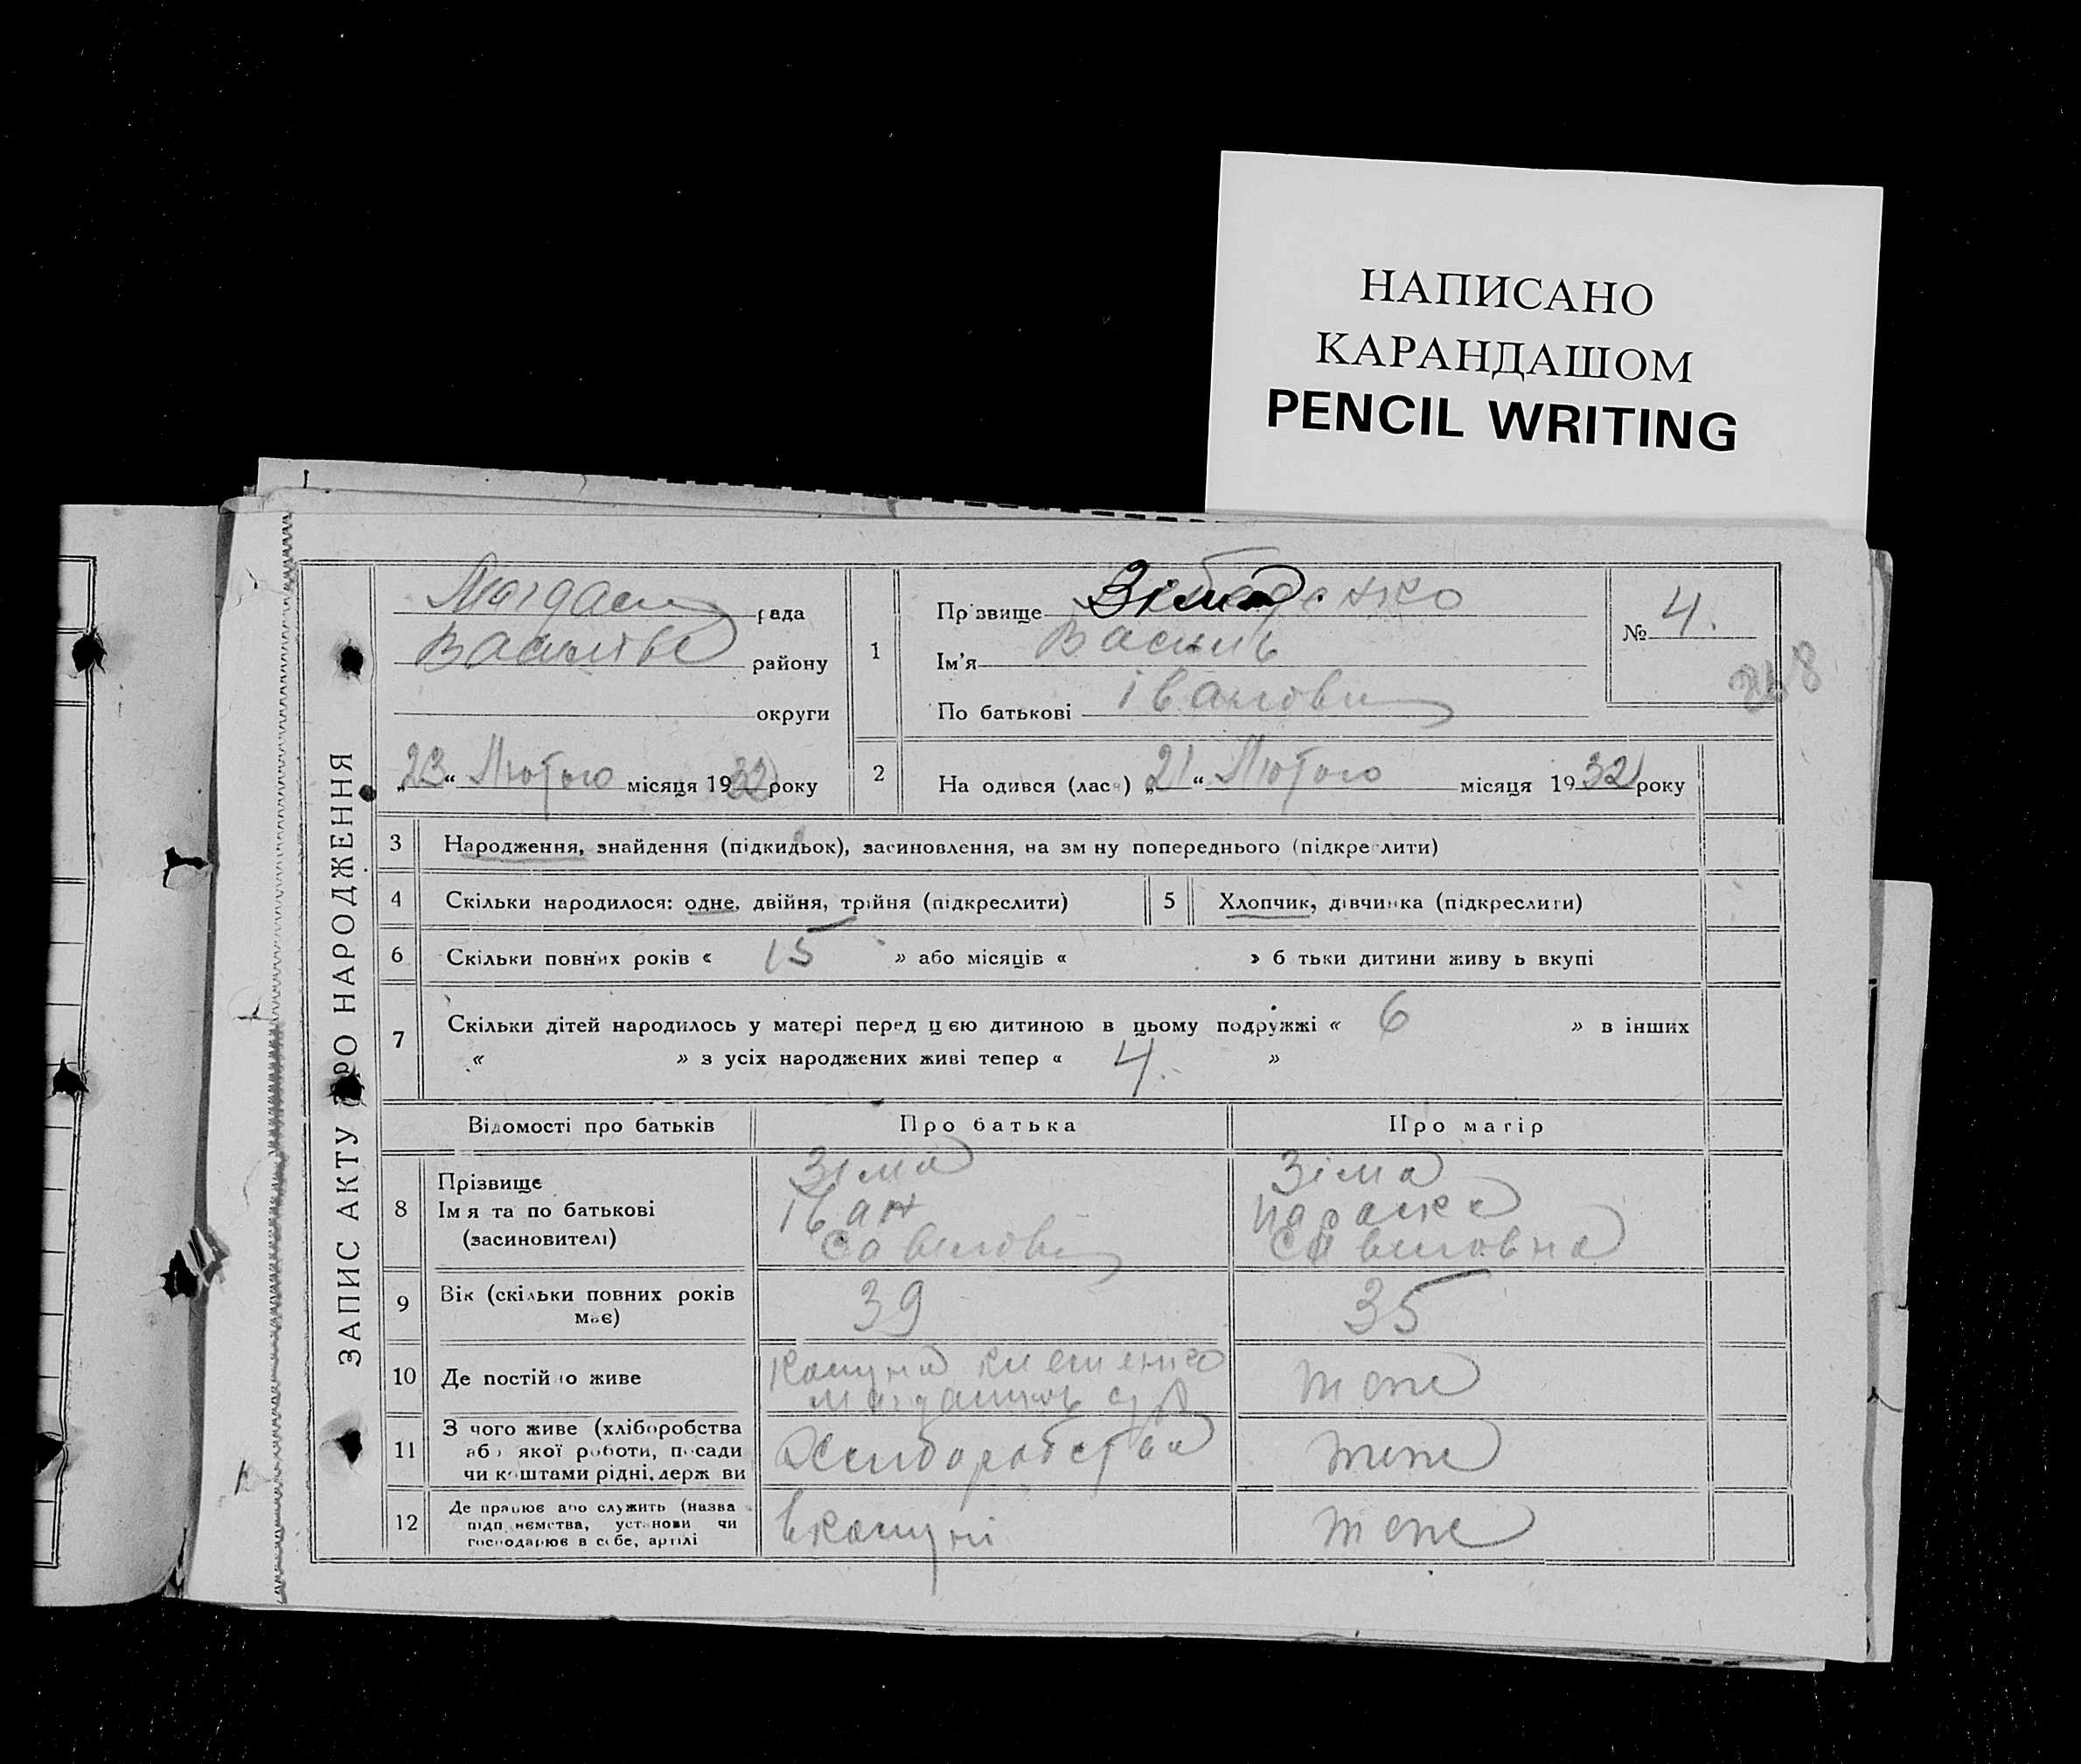 НАПИСАНО
КАРАНДАШОМ
PENCIL WRITING
ЗАПИС АКТУ ПРО НАРОДЖЕННЯ
рада
району
округи
„23“ Лютого місяця 1932 року
1
Прізвище Зіма
Ім'я Василь
По батькові Іванович
№ 4.
2
Народився (лася) „21“ Лютого місяця 1932 року
3 Народження, знайдення (підкидьок), засиновлення, на зміну попереднього (підкреслити)
4 Скільки народилося: одне, двійня, трійня (підкреслити)
5 Хлопчик, дівчинка (підкреслити)
6 Скільки повних років « 15 » або місяців « » батьки дитини живуть вкупі
7 Скільки дітей народилось у матері перед цією дитиною в цьому подружжі « 6 » в інших
« » з усіх народжених живі тепер « 4. »
Відомості про батьків Про батька Про матір
8 Прізвище Зіма Зіма
Ім я та по батькові Іван Параска
(засиновителі) Савелович Савеловна
9 Вік (скільки повних років 39 35
має)
10 Де постійно живе Комуна теж
11 З чого живе (хліборобства
або якої роботи, посади Хліборобства теж
чи коштами рідні, держави
12 Де працює або служить (назва
підприємства, установи чи в комуні теж
господарює в себе, артілі